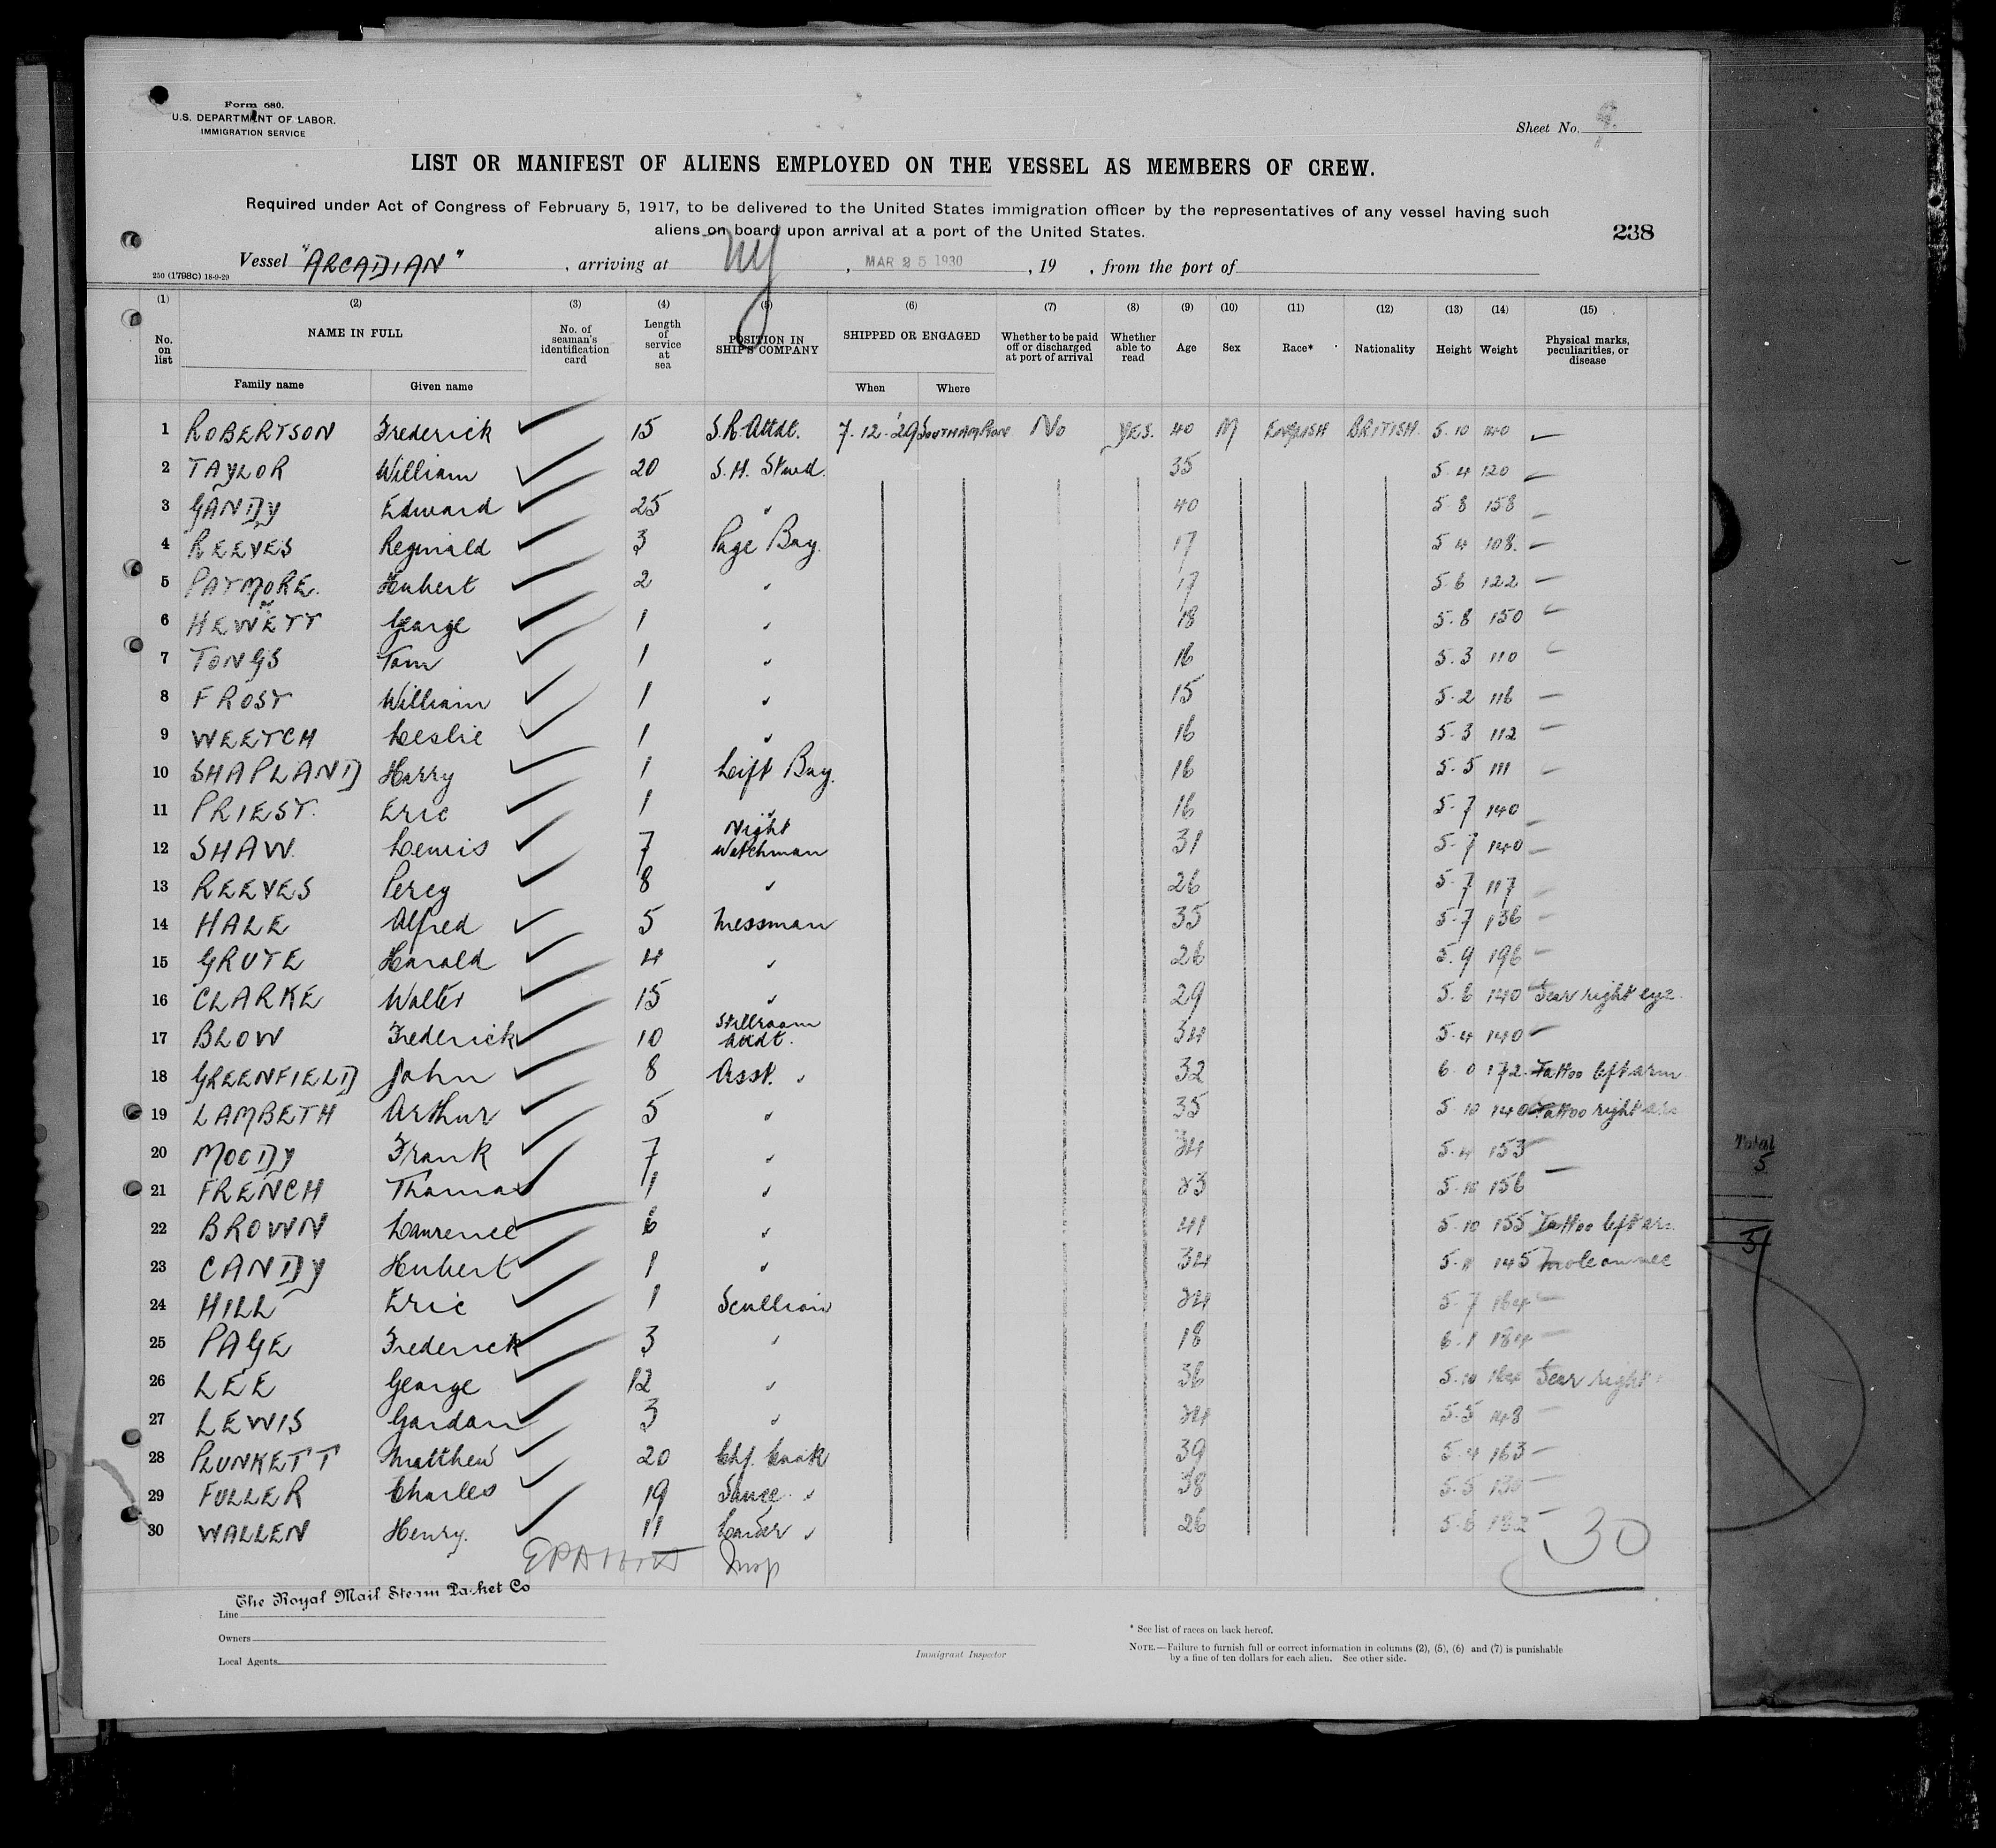 Form 680.
U.S. DEPARTMENT OF LABOR.
IMMIGRATION SERVICE
Sheet No. 9.
LIST OR MANIFEST OF ALIENS EMPLOYED ON THE VESSEL AS MEMBERS OF CREW.
Required under Act of Congress of February 5, 1917, to be delivered to the United States immigration officer by the representatives of any vessel having such
aliens on board upon arrival at a port of the United States.
238
250 (1798c) 18-9-29
Vessel "ARCADIAN", arriving at NY, MAR 25 1930, 19 , from the port of
(1) (2) (3) (4) (5) (6) (7) (8) (9) (10) (11) (12) (13) (14) (15)
No. on list NAME IN FULL Family name Given name No. of seaman's identification card Length of service at sea POSITION IN SHIP'S COMPANY SHIPPED OR ENGAGED When Where Whether to be paid off or discharged at port of arrival Whether able to read Age Sex Race* Nationality Height Weight Physical marks, peculiarities, or disease
1 ROBERTSON Frederick ✓ 15 S.R. Attdt. 7.12.'29 SOUTHAMPTON No YES. 40 M ENGLISH BRITISH. 5.10 140 —
2 TAYLOR William ✓ 20 S.H. Stwd. 35 5.4 120 —
3 GANDY Edward ✓ 25 " 40 5 8 158 —
4 REEVES Reginald ✓ 3 Page Boy. 17 5 4 108. —
5 PATMORE. Hubert ✓ 2 " 17 5.6 122 —
6 HEWETT George ✓ 1 " 18 5.8 150 —
7 TONGS Tom ✓ 1 " 16 5.3 110 —
8 FROST William ✓ 1 " 15 5.2 116 —
9 WEETCH Leslie ✓ 1 " 16 5.3 112 —
10 SHAPLAND Harry ✓ 1 Lift Boy. 16 5.5 111 —
11 PRIEST. Eric ✓ 1 " 16 5.7 140 —
12 SHAW. Lewis ✓ 7 Night Watchman 31 5.7 140 —
13 REEVES Percy ✓ 8 " 26 5.7 117 —
14 HALE Alfred ✓ 5 Messman 35 5.7 136 —
15 GRUTE Harold ✓ 4 " 26 5.9 196 —
16 CLARKE Walter ✓ 15 " 29 5.6 140 Scar right eye.
17 BLOW Frederick ✓ 10 Stillroom Attdt. 34 5.4 140 —
18 GREENFIELD John ✓ 8 Asst. " 32 6.0 172 Tattoo left arm
19 LAMBETH Arthur ✓ 5 " 35 5.10 140 Tattoo right arm
20 MOODY Frank ✓ 7 " 34 5.4 153 —
21 FRENCH Thomas ✓ 1 " 23 5.10 156 —
22 BROWN Laurence ✓ 6 " 41 5.10 155 Tattoo left arm
23 CANDY Hubert ✓ 1 " 34 5.11 145 Mole on
24 HILL Eric ✓ 1 Scullion 24 5.7 164 —
25 PAGE Frederick ✓ 3 " 18 6.1 184 —
26 LEE George ✓ 12 " 36 5.10 164 Scar right
27 LEWIS Gordon ✓ 3 " 24 5.5 148 —
28 PLUNKETT Matthew ✓ 20 Chf. Cook 39 5.4 163 —
29 FULLER Charles ✓ 19 Sauce " 38 5.5 130 —
30 WALLEN Henry. ✓ 11 Larder " 26 5.6 182 —
Insp
30
The Royal Mail Steam Packet Co
Line
Owners
Local Agents
Immigrant Inspector
* See list of races on back hereof.
NOTE.—Failure to furnish full or correct information in columns (2), (5), (6) and (7) is punishable
by a fine of ten dollars for each alien. See other side.
Total
5